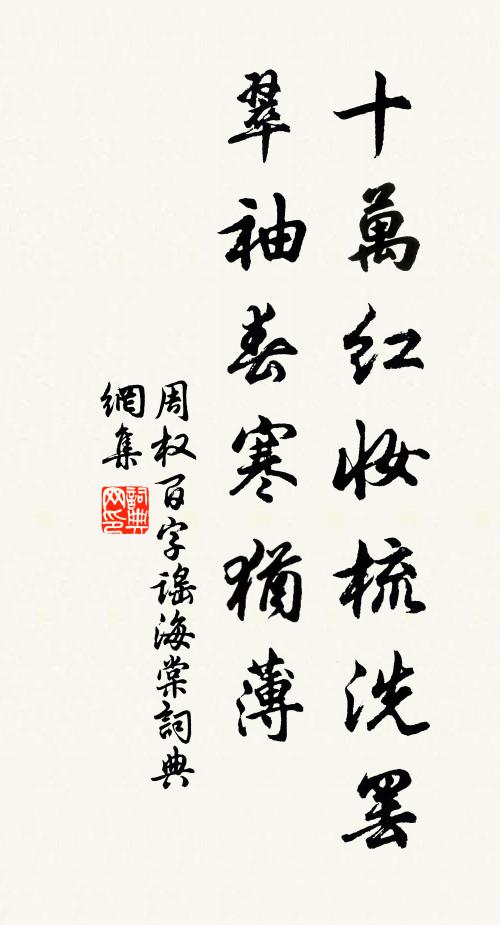 十萬红妝梳洗罢
翠袖春寒猶薄
周权百字谣海棠詞典
網集
詞典网印